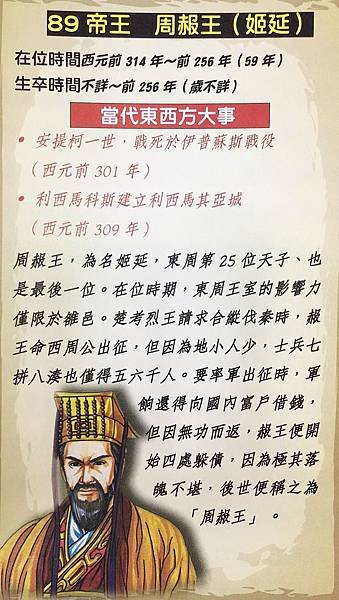 89 帝王　周赧王（姬延）
在位時間西元前 314 年～前 256 年（59 年）
生卒時間不詳～前 256 年（歲不詳）
當代東西方大事
• 安提柯一世，戰死於伊普蘇斯戰役
（西元前 301 年）
• 利西馬科斯建立利西馬其亞城
（西元前 309 年）
周赧王，為名姬延，東周第 25 位天子、也
是最後一位。在位時期，東周王室的影響力
僅限於雒邑。楚考烈王請求合縱伐秦時，赧
王命西周公出征，但因為地小人少，士兵七
拼八湊也僅得五六千人。要率軍出征時，軍
餉還得向國內富戶借錢，
但因無功而返，赧王便開
始四處躲債，因為極其落
魄不堪，後世便稱之為
「周赧王」。